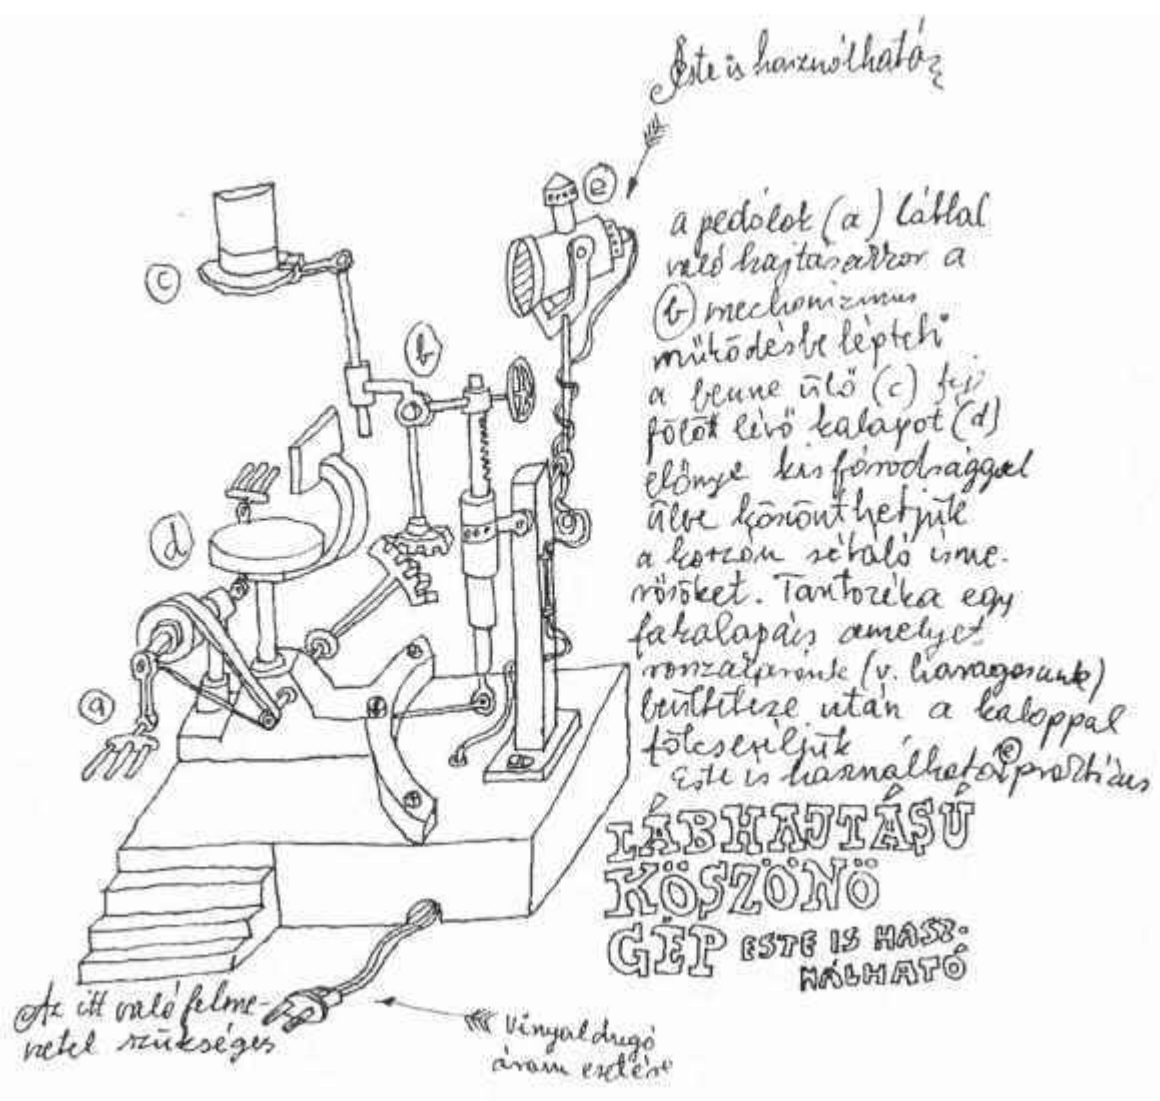 Este is használható
e
c
b
d
a
a pedálok (a) lábbal
való hajtásakkor a
(b) mechanizmus
működésbe lépteti
a benne ülő (c) feje
fölött lévő kalapot (d)
előnye kis fáradsággal
ülve köszönthetjük
a korzón sétáló isme-
rősöket. Tartozéka egy
fakalapács amelyet
rosszakarónk (v. haragosunk)
beültetése után a kalappal
fölcseréljük
Este is használható (e) praktikus
LÁBHAJTÁSÚ
KÖSZÖNŐ
GÉP ESTE IS HASZ-
NÁLHATÓ
Az itt való felme-
netel szükséges
Vinyaldugó
áram esetére